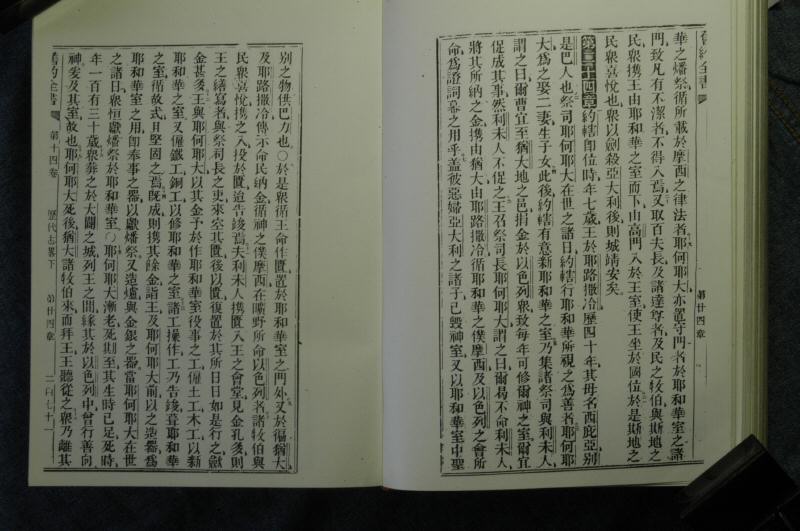 舊約全書
第廿四章
華之燔祭循所載於摩西之律法者耶何耶大亦置守門者於耶和華室之諸
門致凡有不潔者不得入焉又取百夫長及諸達尊者及民之牧伯與斯地之
民衆携王由耶和華之室而下由高門入於王室使王坐於國位於是斯地之
民衆喜悅也衆以劍殺亞大利後則城靖安矣
第二十四章約轄卽位時年七歲王於耶路撒冷歷四十年其毋名西庇亞別
是巴人也祭司耶何耶大在世之諸日約轄行耶和華所視之爲善者耶何耶
大爲之娶二妻生子女此後約轄有意新耶和華之室乃集諸祭司與利未人
謂之曰爾曹宜至猶大地之邑捐金於以色列衆致每年可修爾神之室爾宜
促成其事然利未人不促之王召祭司長耶何耶大謂之曰爾曷不命利未人
將其所納之金携由猶大由耶路撒冷循耶和華之僕摩西及以色列之會所
命爲證詞幕之用乎蓋彼惡婦亞大利之諸子已毀神室又以耶和華室中聖
別之物供巴力也○於是衆循王命作匱置於耶和華室之門外又於猶大
及耶路撒冷傳示命民納金循神之僕摩西在曠野所命以色列者諸牧伯與
民衆喜悅携之入投於匱迨告竣焉夫利未人携匱入王之會堂見金孔多則
王之繕寫者與祭司長之吏來空其匱後以匱復置於其所日日如是行之斂
金甚多王與耶何耶大以其金予於作耶和華室役事之工僱土工木工以新
耶和華之室又僱鐵工銅工以修耶和華之室諸工操作工乃告竣葺耶和華
之室循故式且堅固之焉旣成則携其餘金詣王及耶何耶大前以之造器爲
耶和華室之用卽奉事之器以獻燔祭又造爐與金銀之器當耶何耶大在世
之諸日衆恒獻燔祭於耶和華室○耶何耶大漸老死期至其生時已足死時
年一百有三十歲衆葬之於大闢之城列王之間緣其於以色列中曾行善向
神爰及其室故也耶何耶大死後猶大諸牧伯來而拜王王聽從之衆乃離其
舊約全書
第十四卷
歷代志畧下
第廿四章